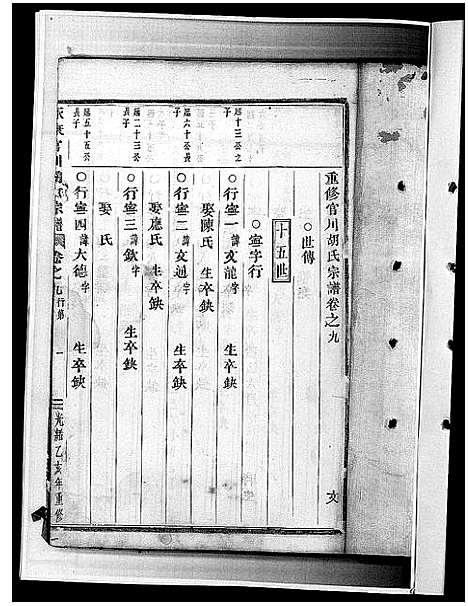 重修官川胡氏宗譜卷之九
攵
○世傳
十五世
○寧字行
廸十三公之子
○行寧一諱文龍字 生卒缺
娶陳氏 生卒缺
廸六十公長子
○行寧二諱文通字 生卒缺
娶應氏 生卒缺
廸二十三公長子
○行寧三諱欽字 生卒缺
娶 氏 生卒缺
廸五十五公長子
○行寧四諱大德字 生卒缺
永康官川胡氏宗譜 卷之九 行第 一 光緒乙亥年重修